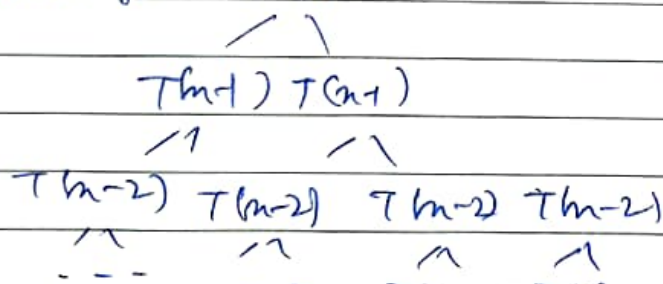 T(n-1) T(n-1)
T(n-2) T(n-2) T(n-2) T(n-2)
- - -